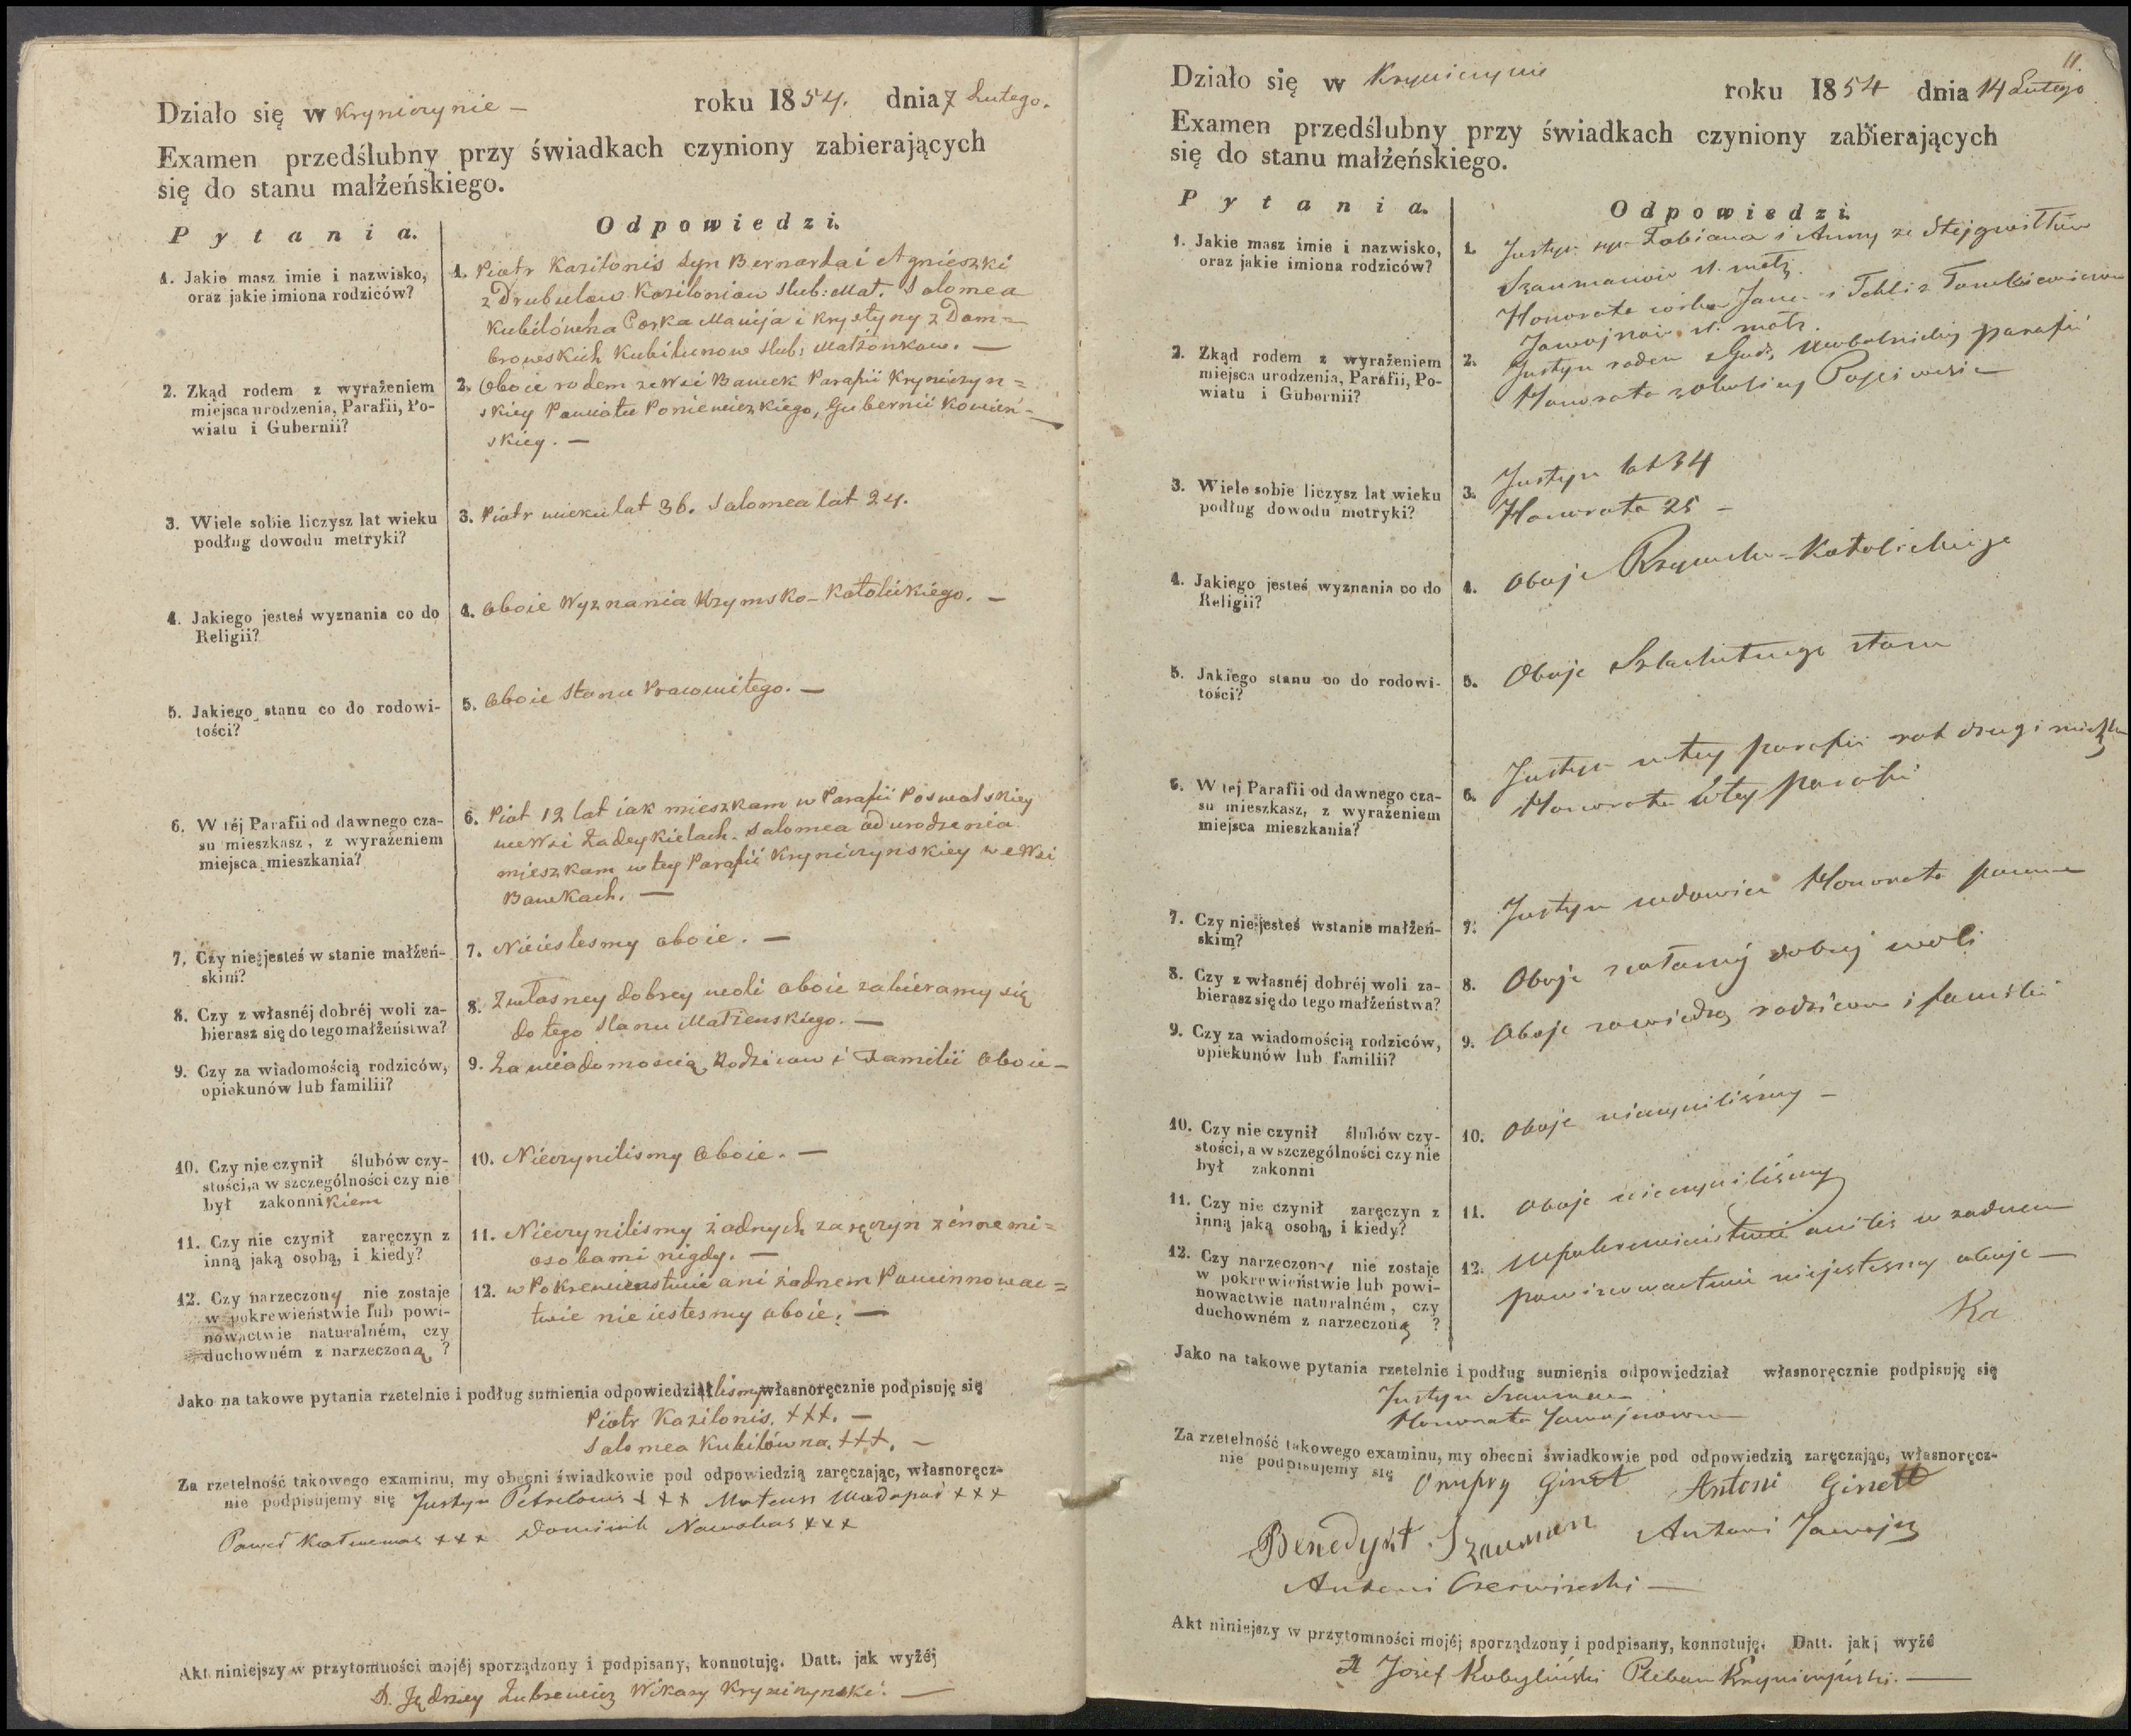 Działo się w Kryniczynie — roku 1854. dnia 7 Lutego.
Examen przedślubny przy świadkach czyniony zabierających
się do stanu małżeńskiego.
Pytania. Odpowiedzi.
1. Jakie masz imie i nazwisko,
oraz jakie imiona rodziców?
1. Piotr Kazilonis Syn Bernarda i Agnieszki
z Drubulow Kazilonisow Slub: Mat. Salomea
Kubilówna Corka Macieja i Krystyny z Dom=
browskich Kubilunow slub: Małżonkow. —
2. Zkąd rodem z wyrażeniem
miejsca urodzenia, Parafii, Po-
wiatu i Gubernii?
2. Oboie rodem ze Wsi Bawek Parafii Kryniczyn=
skiey Powiatu Poniewiezkiego, Gubernii Kowien-
skiey. —
3. Wiele sobie liczysz lat wieku
podług dowodu metryki?
3. Piotr wieku lat 36. Salomea lat 24.
4. Jakiego jesteś wyznania co do
Religii?
4. Oboie Wyznania Rzymsko-Katolickiego. —
5. Jakiego stanu co do rodowi-
tości?
5. Oboie Stanu Pracowitego. —
6. W téj Parafii od dawnego cza-
su mieszkasz, z wyrażeniem
miejsca mieszkania?
6. Piot 12 lat iak mieszkam w Parafii
we Wsi Salomea od urodzenia
mieszkam w tey Parafii Kryniczynskiey we Wsi
Bawkach. —
7. Czy nie jesteś w stanie małżeń-
skim?
7. Nieiestesmy oboie. —
8. Czy z własnéj dobréj woli za-
bierasz się do tego małżeństwa?
8. Z własney dobrey woli oboie zabieramy się
do tego Stanu Małżenskiego. —
9. Czy za wiadomością rodziców,
opiekunów lub familii?
9. Za wiadomoscią Rodzicow i Familii oboie —
10. Czy nie czynił ślubów czy-
stości, a w szczególności czy nie
był zakonnikiem
10. Nieczynilismy oboie. —
11. Czy nie czynił zaręczyn z
inną jaką osobą, i kiedy?
11. Nieczynilismy żadnych zaręczyn z innemi=
osobami nigdy. —
12. Czy narzeczony nie zostaje
w pokrewieństwie lub powi-
nowactwie naturalném, czy
duchowném z narzeczoną ?
12. w Pokrewienstwie ani żadnem Powinnowac=
twie nie iestesmy oboie. —
Jako na takowe pytania rzetelnie i podług sumienia odpowiedzielismy własnoręcznie podpisuję się
Piotr Kazilonis. +++. —
Salomea Kubilówna. +++. —
Za rzetelność takowego examinu, my obecni świadkowie pod odpowiedzią zaręczając, własnoręcz-
nie podpisujemy się Justyn +++ Mateusz +++
Paweł +++ Dominik +++
Akt niniejszy w przytomności mojéj sporządzony i podpisany, konnotuję. Datt. jak wyżéj
X. Jędrzey Wikary Kryniczynski. —
11.
Działo się w Kryniczynie roku 1854 dnia 14 Lutego
Examen przedślubny przy świadkach czyniony zabierających
się do stanu małżeńskiego.
Pytania. Odpowiedzi.
1. Jakie masz imie i nazwisko,
oraz jakie imiona rodziców?
1. Justyn syn Fabiana i Anny ze Stejgwiłłów
Szaumanow sl. małż.
Honorata córka Jana i Tekli z
sl. małż.
2. Zkąd rodem z wyrażeniem
miejsca urodzenia, Parafii, Po-
wiatu i Gubernii?
2. Justyn rodem z Gub. parafii
Honorata
3. Wiele sobie liczysz lat wieku
podług dowodu metryki?
3. Justyn lat 34
Honorata 25 —
4. Jakiego jesteś wyznania co do
Religii?
4. Oboje Rzymsko-Katolickiego
5. Jakiego stanu co do rodowi-
tości?
5. Oboje Szlachetnego stanu
6. W tej Parafii od dawnego cza-
su mieszkasz, z wyrażeniem
miejsca mieszkania?
6. Justyn w tey parafii rok drugi
Honorata w tey parafii
7. Czy nie jesteś w stanie małżeń-
skim?
7. Justyn wdowiec Honorata panna
8. Czy z własnéj dobréj woli za-
bierasz się do tego małżeństwa?
8. Oboje z własnéj dobrej woli
9. Czy za wiadomością rodziców,
opiekunów lub familii?
9. Oboje za wiedzą rodziców i familii
10. Czy nie czynił ślubów czy-
stości, a w szczególności czy nie
był zakonni
10. Oboje nieczyniliśmy —
11. Czy nie czynił zaręczyn z
inną jaką osobą, i kiedy?
11. Oboje nieczyniliśmy
12. Czy narzeczony nie zostaje
w pokrewieństwie lub powi-
nowactwie naturalném, czy
duchowném z narzeczoną ?
12. W pokrewieństwie ani też w żadnem
powinowactwie niejestesmy oboje —
Ka
Jako na takowe pytania rzetelnie i podług sumienia odpowiedział własnoręcznie podpisuję się
Justyn Szauman
Honorata
Za rzetelność takowego examinu, my obecni świadkowie pod odpowiedzią zaręczając, własnoręcz-
nie podpisujemy się Onupry Ginet Antoni Ginett
Benedykt Szauman Antoni
Antoni Czerwinski —
Akt niniejszy w przytomności mojéj sporządzony i podpisany, konnotuję. Datt. jakj wyżé
X Józef Kobyliński Pleban Kryniczyński. —